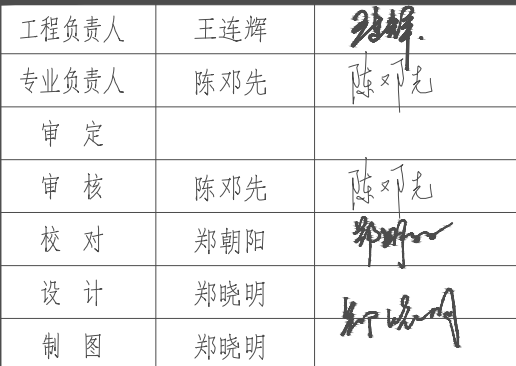 工程负责人 王连辉 王连辉
专业负责人 陈邓先 陈邓先
审 定
审 核 陈邓先 陈邓先
校 对 郑朝阳
设 计 郑晓明 郑晓明
制 图 郑晓明